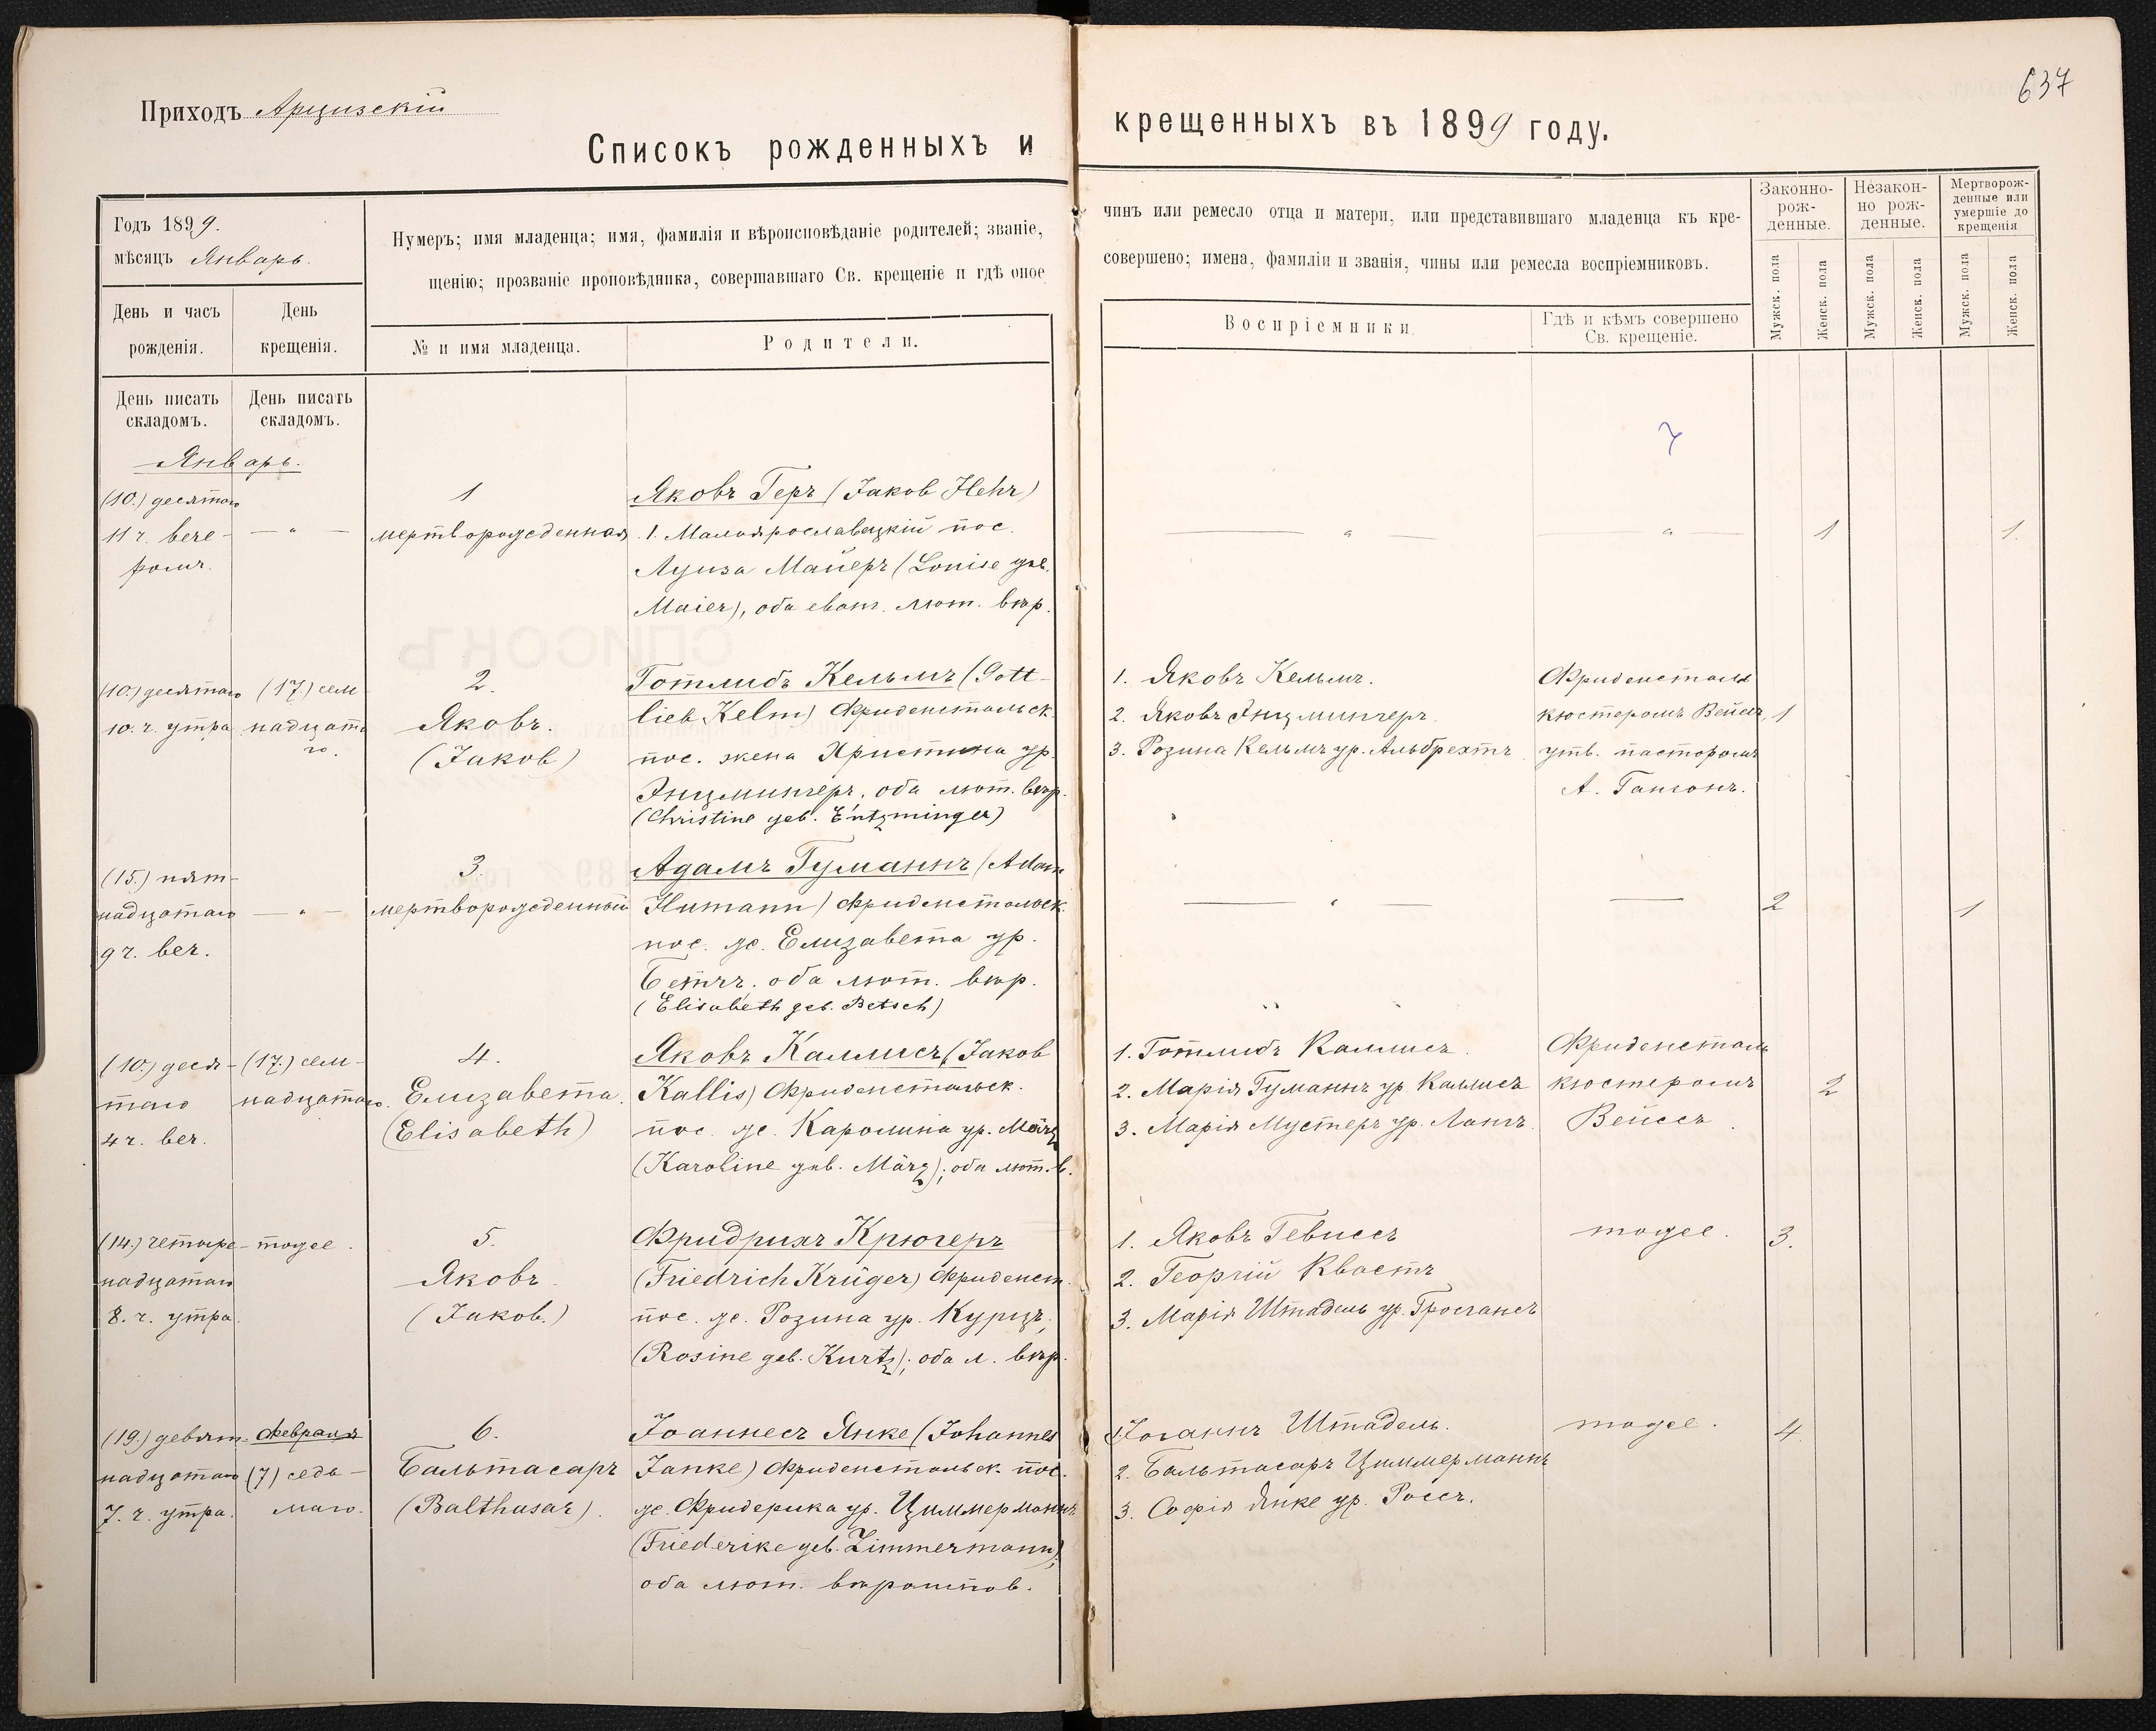 637
Приходъ Арцизскій
Списокъ рожденныхъ и
крещенныхъ въ 1899 году.
Годъ 1899.
мѣсяцъ Январь.
День и часъ рожденія.
День крещенія.
Нумеръ; имя младенца; имя, фамилія и вѣроисповѣданіе родителей; званіе,
щенію; прозваніе проповѣдника, совершавшаго Св. крещеніе и гдѣ оное
№ и имя младенца.
Родители.
чинъ или ремесло отца и матери, или представившаго младенца къ кре-
совершено; имена, фамиліи и званія, чины или ремесла воспріемниковъ.
Воспріемники.
Гдѣ и кѣмъ совершено
Св. крещеніе.
Законно-
рож-
денные.
Незакон-
но рож-
денные.
Мертворож-
денные или
умершіе до
крещенія
Мужск. пола
Женск. пола
Мужск. пола
Женск. пола
Мужск. пола
Женск. пола
День писать
складомъ.
День писать
складомъ.
Январь.
(10.) десятаго
11 ч. вече-
ромъ.
— „ —
1
мертворожденная
Яковъ Геръ (Jakob Hehr)
1. Малоярославецкій пос.
Луиза Майеръ (Louise geb.
Maier), оба еванг. лют. вѣр.
— „ —
— „ —
1
1.
(10.) десятаго
10. ч. утра
(17.) сем-
надцата-
го.
2.
Яковъ.
(Jakob)
Готлибъ Кельмъ (Gott-
lieb Kelm) Фриденстальск.
пос. жена Христина ур.
Энцмингеръ. оба лют. вѣр.
(Christine geb. Entzminger)
1. Яковъ Кельмъ.
2. Яковъ Энцмингеръ.
3. Розина Кельмъ ур. Альбрехтъ.
Фриденсталь
кюстеромъ Вейсъ,
утв. пасторомъ
А. Гансонъ.
1
(15.) пят-
надцатаго
9 ч. веч.
— „ —
3.
мертворожденный
Адамъ Гуманнъ (Adam
Humann) Фриденстальск.
пос. ж. Елизавета ур.
Бетчъ. оба лют. вѣр.
(Elisabeth geb. Betsch)
— „ —
—
2
1
(10.) деся-
таго
4 ч. веч.
(17.) сем-
надцатаго.
4.
Елизавета.
(Elisabeth)
Яковъ Каллисъ (Jakob
Kallis) Фриденстальск.
пос. ж. Каролина ур. März
(Karoline geb. März); оба лют. в.
1. Готлибъ Каллисъ.
2. Марія Гуманнъ ур. Каллисъ
3. Марія Мустеръ ур. Лангъ.
Фриденсталь
кюстеромъ
Вейссъ.
2
(14.) четыре-
надцатаго
8. ч. утра.
тоже.
5.
Яковъ.
(Jakob.)
Фридрихъ Крюгеръ
(Friedrich Krüger) Фриденст.
пос. ж. Розина ур. Курцъ,
(Rosine geb. Kurtz); оба л. вѣр.
1. Яковъ Гевиссъ
2. Георгій Квастъ
3. Марія Штадель ур. Гросгансъ
тоже.
3.
(19.) девят-
надцатаго
7. ч. утра.
Февраля
(7) седь-
маго.
6.
Бальтасаръ
(Balthasar).
Іоаннесъ Янке (Johannes
Janke) Фриденстальск. пос.
ж. Фридерика ур. Циммерманнъ
(Friederike geb. Zimmermann);
оба лют. вѣроиспов.
1. Іоганнъ Штадель.
2. Бальтасаръ Циммерманнъ
3. Софія Янке ур. Россъ.
тоже.
4.